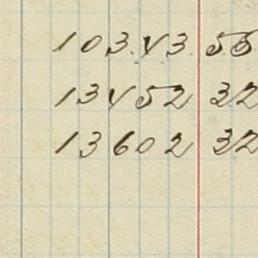 10343 55
13452 32
13602 32